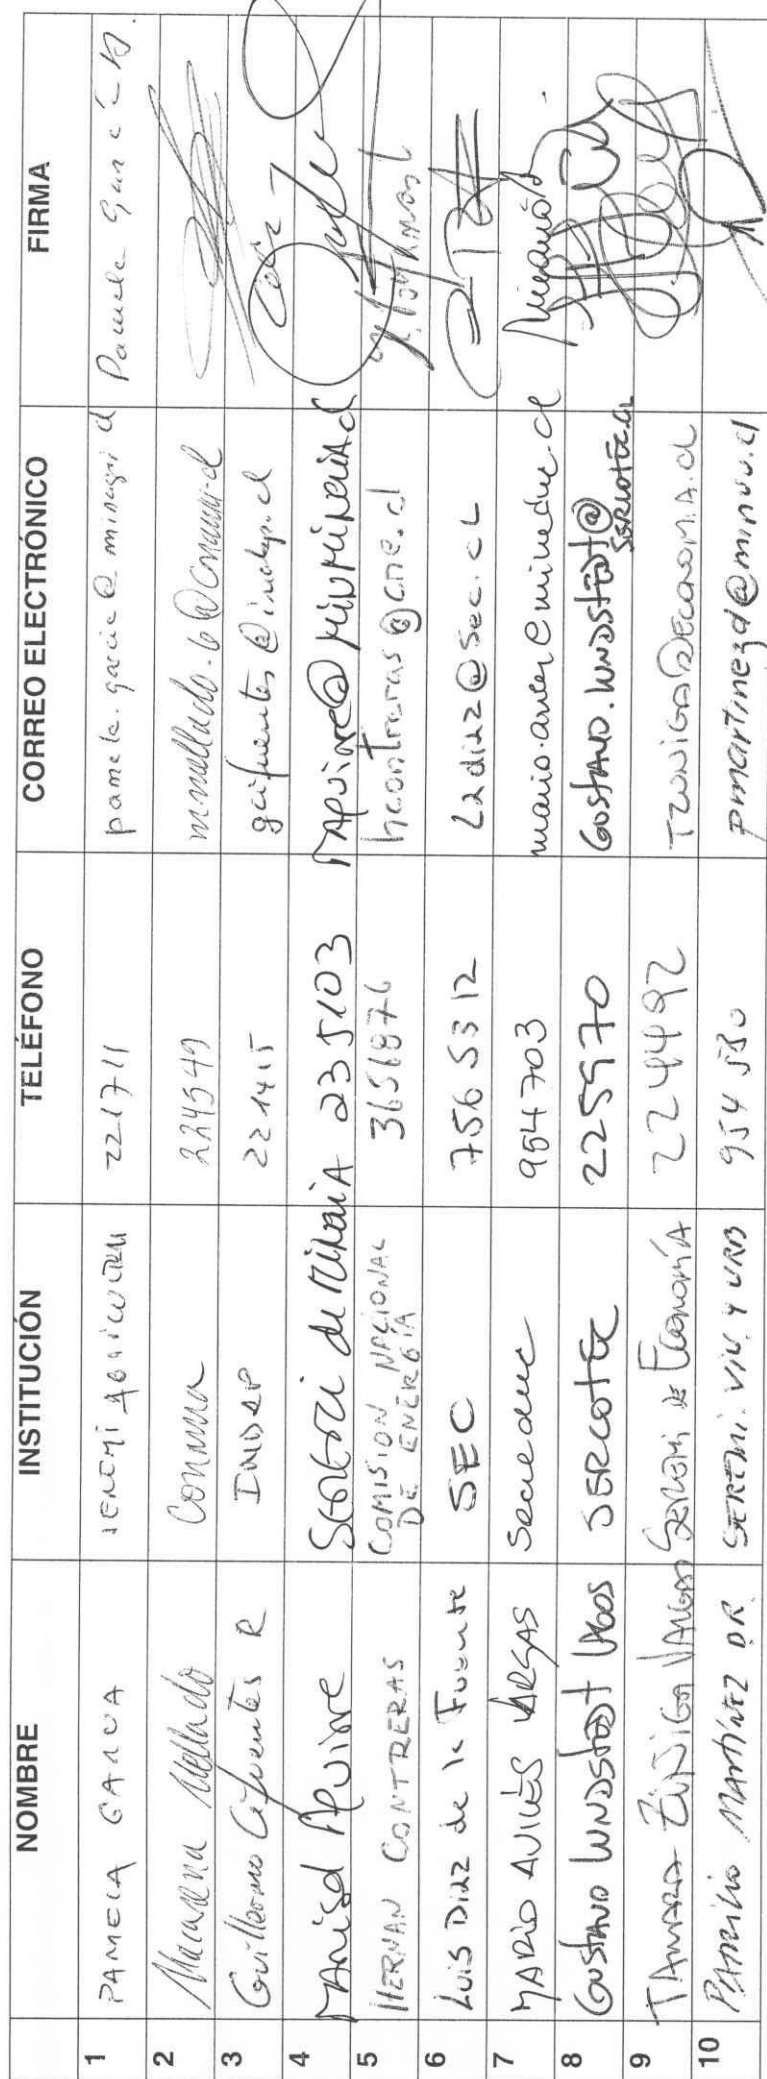 NOMBRE INSTITUCIÓN TELÉFONO CORREO ELECTRÓNICO FIRMA
1 PAMELA GARCIA SEREMI AGRICULTURA 221711 pamela.garcia@minagri.cl Pamela García
2 Macarena Mellado Conama 224549 mmellado.6@conama.cl
3 Guillermo Cifuentes R INDAP 221415 gcifuentes@indap.cl
4 Marisol Aguirre SEREMI de Minería 235103 maguirre@minmineria.cl
5 HERNAN CONTRERAS COMISION NACIONAL DE ENERGÍA 3656876 hcontreras@cne.cl
6 LUIS DIAZ de la Fuente SEC 756 5312 Ladiaz@sec.cl
7 MARIO AVILÉS VARGAS Secreduc 954703 mario.aviles@mineduc.cl
8 GUSTAVO LUNDSTEDT LAGOS SERCOTEC 225970 GUSTAVO.LUNDSTEDT@SERCOTEC.CL
9 TAMARA ZÚÑIGA VARGAS SEREMI de Economía 224492 TZUNIGA@ECONOMIA.CL
10 PATRICIO MARTÍNEZ DR SEREMI. VIV. Y URB 954 530 pmartinezd@minvu.cl